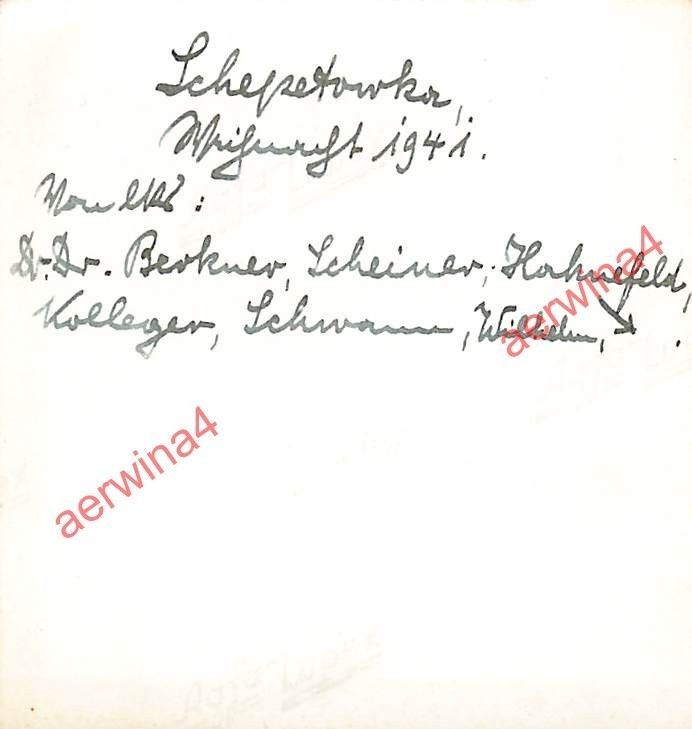 Schepetowka,
Weihnacht 1941.
Von lks:
Dr. Dr. Berkner, Scheiner, Hahnefeld,
Kolleger, Schwamm, Wilhelm, →.
aerwina4
aerwina4